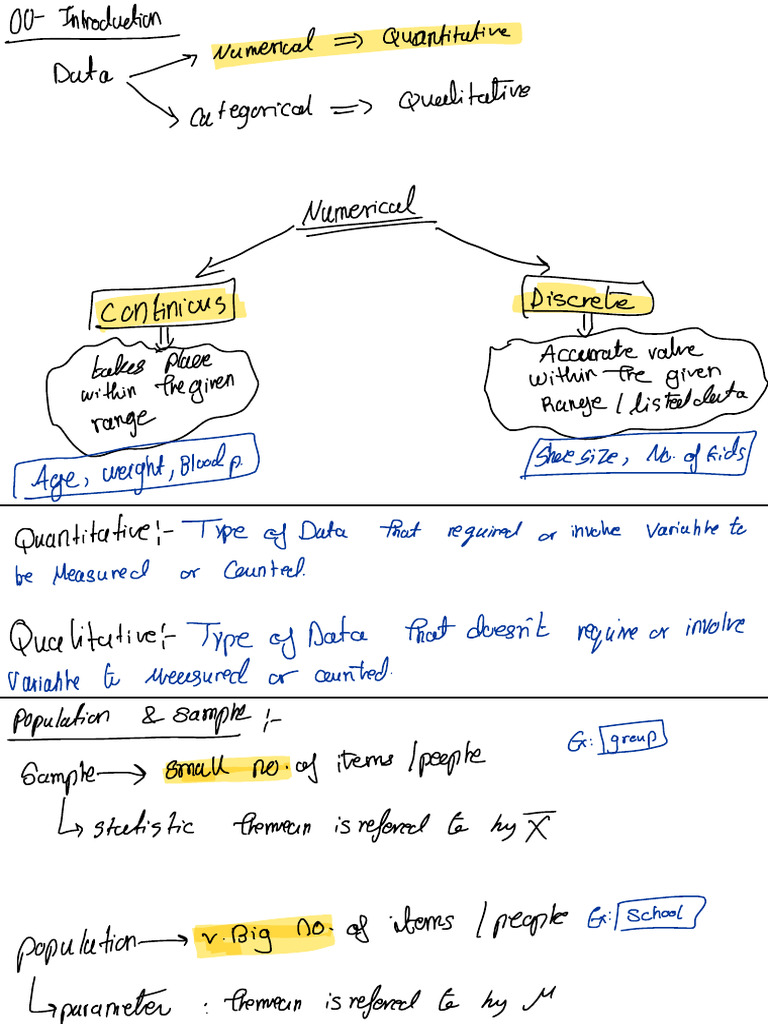 00- Introduction
Data
Numerical => Quantitative
Categorical => Qualitative
Numerical
Continious
Discrete
takes place
within the given
range
Accurate value
within the given
Range / listed data
Age, weight, Blood p.
Shoe size, No. of kids
Quantitative:- Type of Data that required or involve Variable to
be Measured or Counted.
Qualitative:- Type of Data that doesn't require or involve
Variable to Measured or counted.
Population & Sample :-
Sample → small no. of items / people Ex: group
↳ statistic the mean is refered to by X̅
population → v. Big no. of items / people Ex: School
↳ parameter : the mean is refered to by M